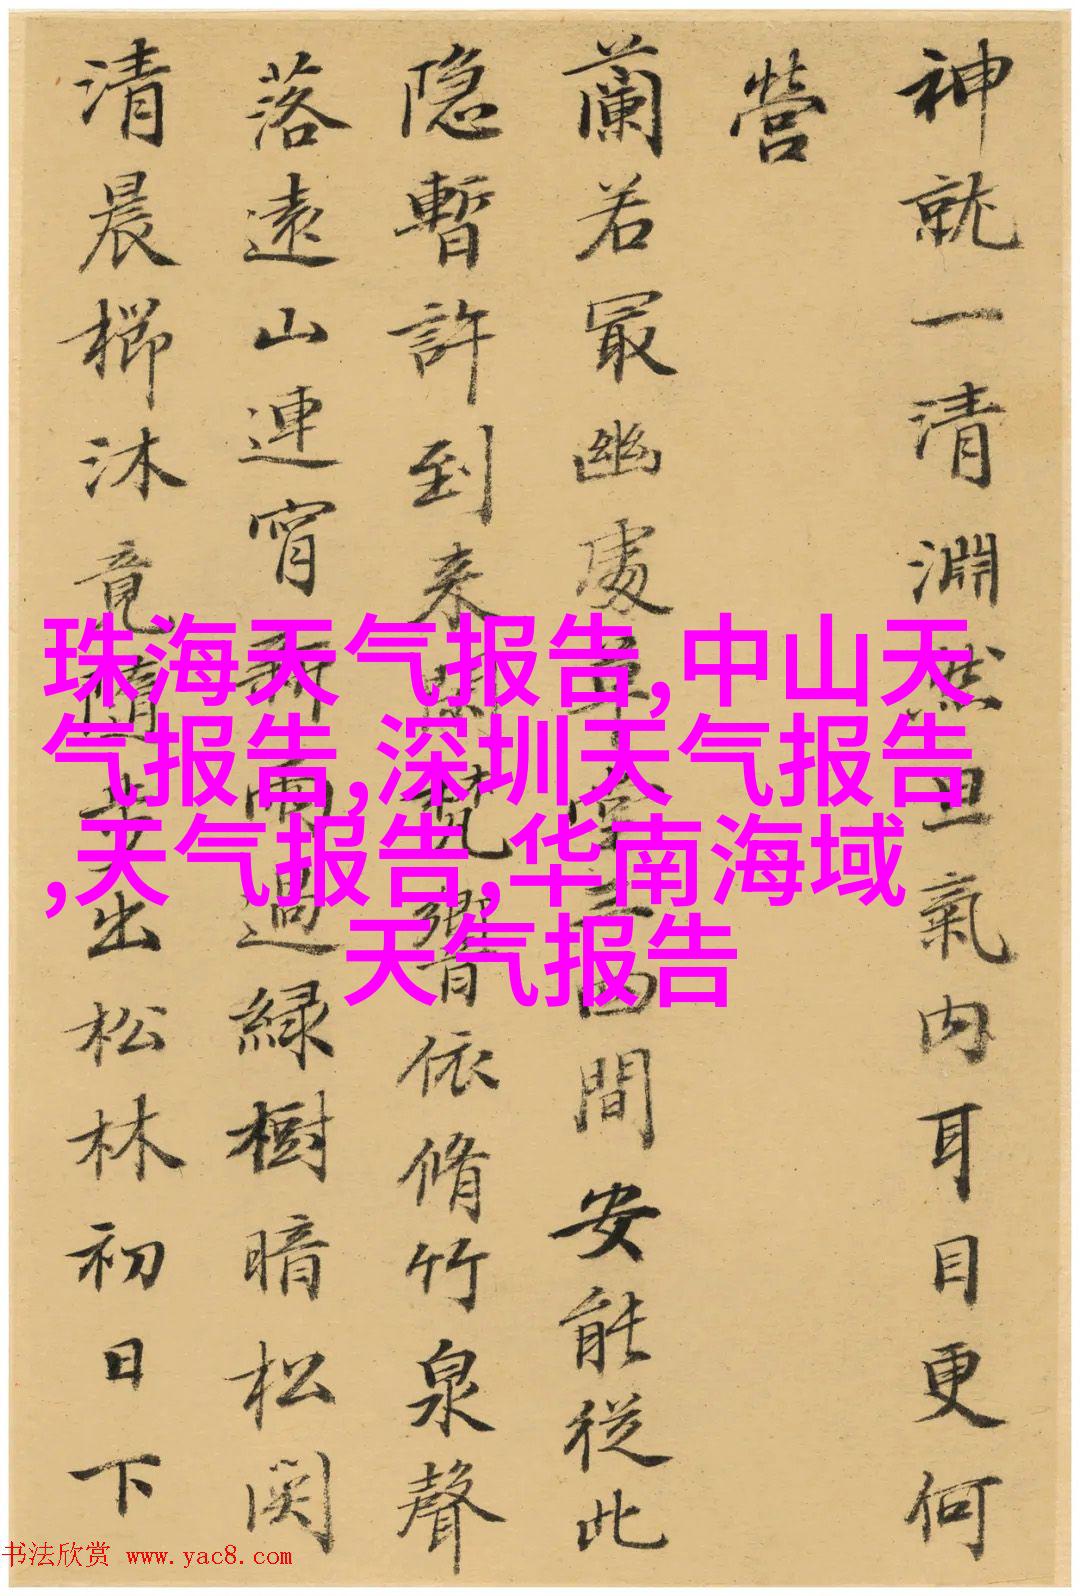 神就一清淵然丑氣内耳目更何
營
蘭若冣幽處草堂三四間安能從此
隐暫許到来閑梵響依脩竹泉聲
落遠山連宵新雨過緑樹暗松関
清晨櫛沐竟隨步出松林初日下
珠海天气报告,中山天
气报告,深圳天气报告
,天气报告,华南海域
天气报告
书法欣赏 www.yac8.com